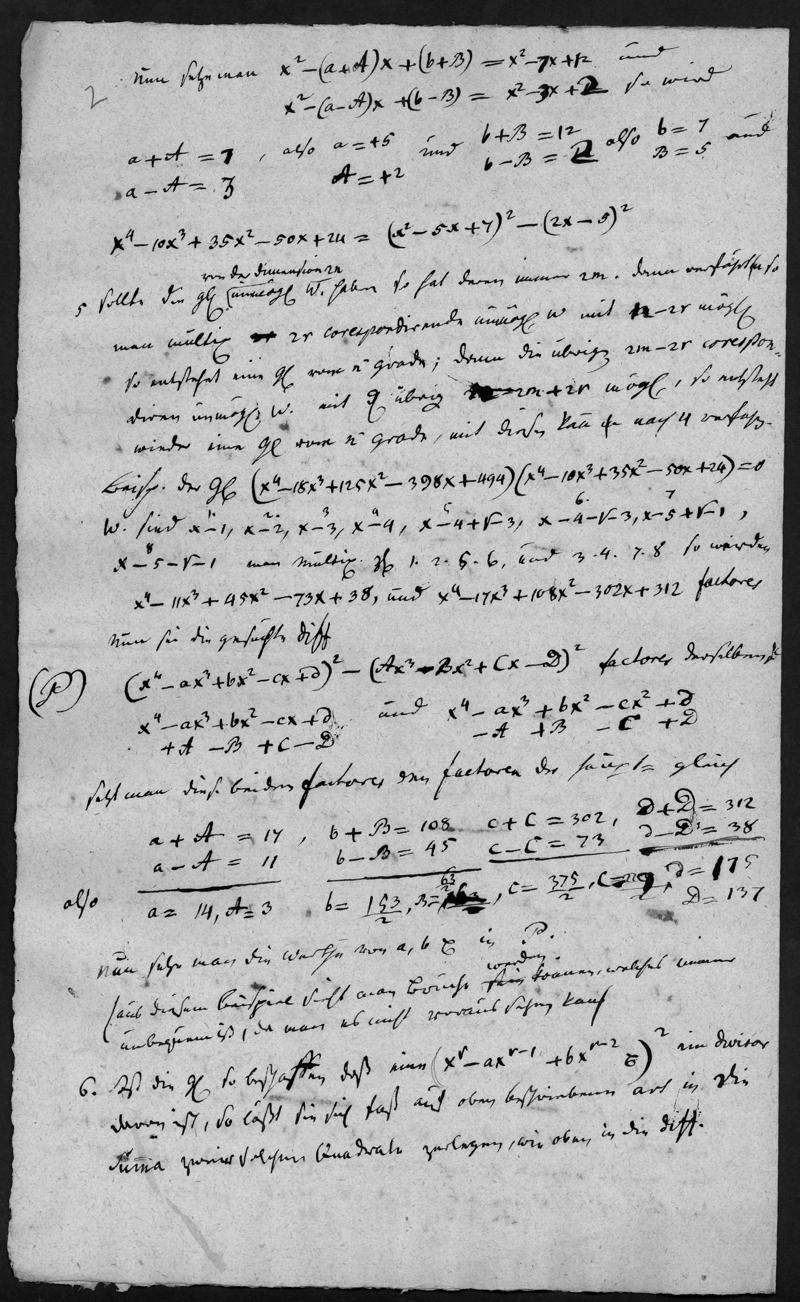 2
Nun setze man x²−(a+A)x+(b+B) = x²−7x+12 und
x²−(a−A)x+(b−B) = x²−3x+2 so wird
a+A = 7, also a=+5 und b+B=12 also b=7 und
a−A = 3 A=+2 b−B=2 B=5
x⁴−10x³+35x²−50x+24 = (x²−5x+7)²−(2x−5)²
von der dimension 2n
5 Sollte die gl unmögl W. haben so hat deren immer 2m. dann verfährt so
man multip 2r corespondirende unmögl w mit n−2r mögl
so entstehet eine gl vom n grade; denn die übrig 2m−2r corespon=
diren unmögl W. mit übrig −2m+2r mögl, so entsteht
wieder eine gl vom n grade, mit diesen nach 4 verfahr.
Beisp. der gl (x⁴−18x³+125x²−398x+494)(x⁴−10x³+35x²−50x+24)=0
W. sind x−1, x−2, x−3, x−4, x−4+√−3, x−4−√−3, x−5+√−1,
x−5−√−1 man multip. 1. 2. 5. 6, und 3. 4. 7. 8 so werden
x⁴−11x³+45x²−73x+38, und x⁴−17x³+108x²−302x+312 factores
Nun sei die gesuchte diff
(P) (x⁴−ax³+bx²−cx+d)²−(Ax³−Bx²+Cx−D)² factores derselben
x⁴−ax³+bx²−cx+d und x⁴−ax³+bx²−cx²+d
+A −B +C −D −A +B −C +D
setzt man diese beiden factores den factoren der haupt= gleich
a+A = 17, b+B=108 c+C=302, d+D=312
a−A = 11 b−B=45 c−C=73 d−D=38
also a=14, A=3 b=153/2, B=63/2, c=375/2, C= d=175
D=137
Nun setze man die werthe von a, b in P.
(aus diesem Beispiel sieht man Brüche werden können, welches immer
unbequem ist, da man es nicht voraus sehen kan
6. Ist die gl so beschaffen daß eine (xʳ−axʳ⁻¹+bxʳ⁻²)² ein divisor
davon ist, so läßt sie sich fast auf oben beschriebene art in die
Suma zweier solcher Quadrate zerlegen, wie oben in die diff.